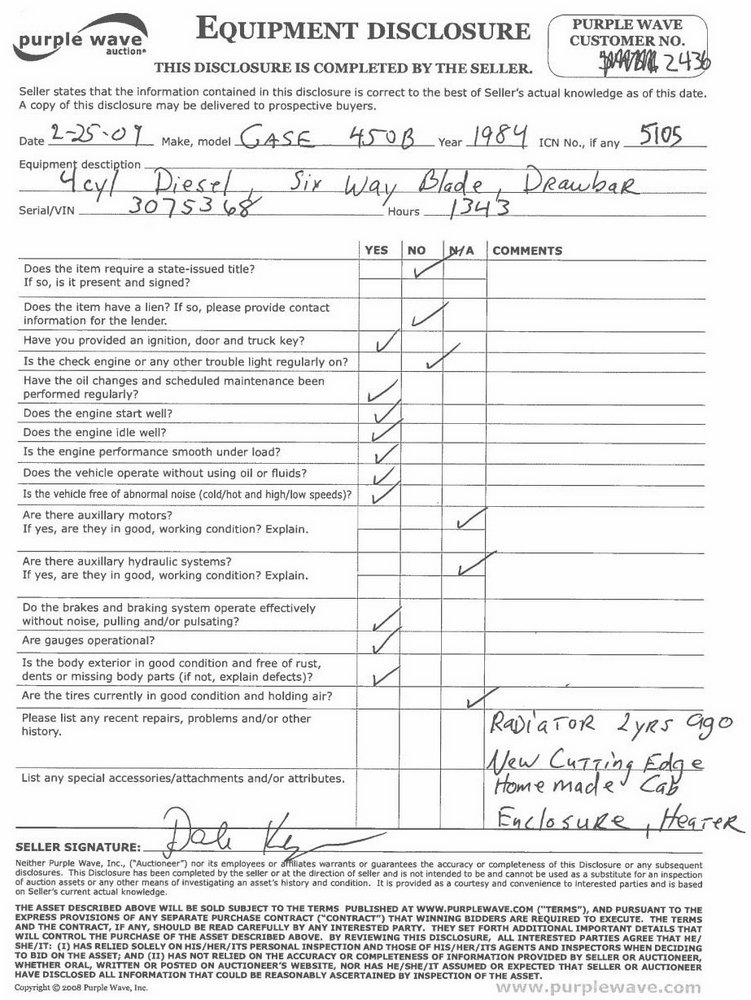 purple wave
auction®
EQUIPMENT DISCLOSURE
THIS DISCLOSURE IS COMPLETED BY THE SELLER.
PURPLE WAVE
CUSTOMER NO.
2436
Seller states that the information contained in this disclosure is correct to the best of Seller's actual knowledge as of this date.
A copy of this disclosure may be delivered to prospective buyers.
Date 2-25-09 Make, model CASE 450B Year 1984 ICN No., if any 5105
Equipment desctiption
4cyl Diesel, Six Way Blade, Drawbar
Serial/VIN 3075368 Hours 1343
YES NO N/A COMMENTS
Does the item require a state-issued title?
If so, is it present and signed?
Does the item have a lien? If so, please provide contact
information for the lender.
Have you provided an ignition, door and truck key?
Is the check engine or any other trouble light regularly on?
Have the oil changes and scheduled maintenance been
performed regularly?
Does the engine start well?
Does the engine idle well?
Is the engine performance smooth under load?
Does the vehicle operate without using oil or fluids?
Is the vehicle free of abnormal noise (cold/hot and high/low speeds)?
Are there auxillary motors?
If yes, are they in good, working condition? Explain.
Are there auxillary hydraulic systems?
If yes, are they in good, working condition? Explain.
Do the brakes and braking system operate effectively
without noise, pulling and/or pulsating?
Are gauges operational?
Is the body exterior in good condition and free of rust,
dents or missing body parts (if not, explain defects)?
Are the tires currently in good condition and holding air?
Please list any recent repairs, problems and/or other
history.
Radiator 2yrs ago
New Cutting Edge
List any special accessories/attachments and/or attributes.
Homemade Cab
Enclosure, Heater
SELLER SIGNATURE: Dale
Neither Purple Wave, Inc., ("Auctioneer") nor its employees or affiliates warrants or guarantees the accuracy or completeness of this Disclosure or any subsequent
disclosures. This Disclosure has been completed by the seller or at the direction of seller and is not intended to be and cannot be used as a substitute for an inspection
of auction assets or any other means of investigating an asset's history and condition. It is provided as a courtesy and convenience to interested parties and is based
on Seller's current actual knowledge.
THE ASSET DESCRIBED ABOVE WILL BE SOLD SUBJECT TO THE TERMS PUBLISHED AT WWW.PURPLEWAVE.COM ("TERMS"), AND PURSUANT TO THE
EXPRESS PROVISIONS OF ANY SEPARATE PURCHASE CONTRACT ("CONTRACT") THAT WINNING BIDDERS ARE REQUIRED TO EXECUTE. THE TERMS
AND THE CONTRACT, IF ANY, SHOULD BE READ CAREFULLY BY ANY INTERESTED PARTY. THEY SET FORTH ADDITIONAL IMPORTANT DETAILS THAT
WILL CONTROL THE PURCHASE OF THE ASSET DESCRIBED ABOVE. BY REVIEWING THIS DISCLOSURE, ALL INTERESTED PARTIES AGREE THAT HE/
SHE/IT: (I) HAS RELIED SOLELY ON HIS/HER/ITS PERSONAL INSPECTION AND THOSE OF HIS/HER/ITS AGENTS AND INSPECTORS WHEN DECIDING
TO BID ON THE ASSET; AND (II) HAS NOT RELIED ON THE ACCURACY OR COMPLETENESS OF INFORMATION PROVIDED BY SELLER OR AUCTIONEER,
WHETHER ORAL, WRITTEN OR POSTED ON AUCTIONEER'S WEBSITE, NOR HAS HE/SHE/IT ASSUMED OR EXPECTED THAT SELLER OR AUCTIONEER
HAVE DISCLOSED ALL INFORMATION THAT COULD BE REASONABLY ASCERTAINED BY INSPECTION OF THE ASSET.
Copyright © 2008 Purple Wave, Inc.
www.purplewave.com